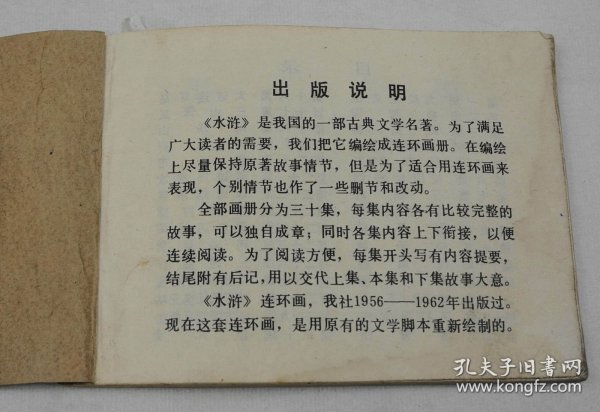 出版说明
《水浒》是我国的一部古典文学名著。为了满足
广大读者的需要，我们把它编绘成连环画册。在编绘
上尽量保持原著故事情节，但是为了适合用连环画来
表现，个别情节也作了一些删节和改动。
全部画册分为三十集，每集内容各有比较完整的
故事，可以独自成章；同时各集内容上下衔接，以便
连续阅读。为了阅读方便，每集开头写有内容提要，
结尾附有后记，用以交代上集、本集和下集故事大意。
《水浒》连环画，我社1956——1962年出版过。
现在这套连环画，是用原有的文学脚本重新绘制的。
孔夫子旧书网
www.kongfz.com